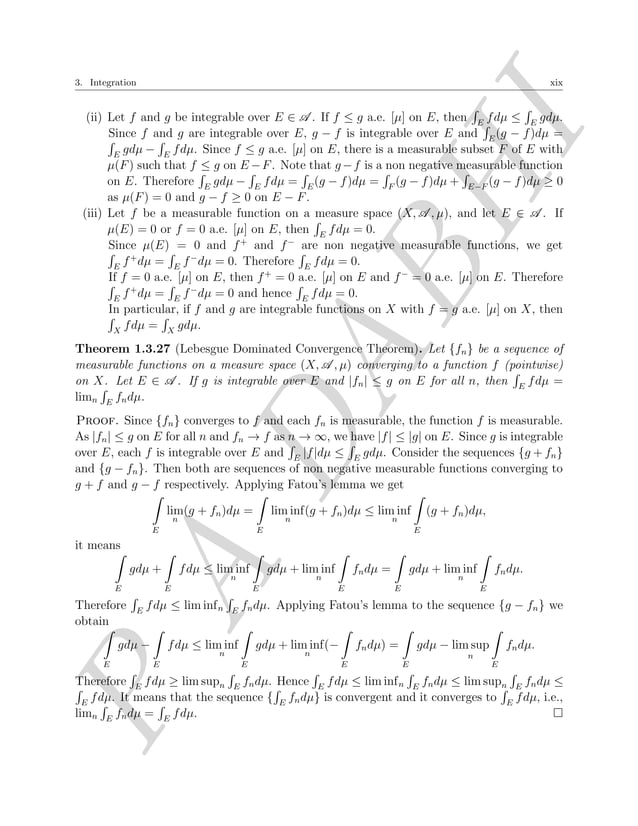 3. Integration xix
(ii) Let f and g be integrable over E ∈ 𝒜. If f ≤ g a.e. [μ] on E, then ∫_E fdμ ≤ ∫_E gdμ.
Since f and g are integrable over E, g − f is integrable over E and ∫_E(g − f)dμ =
∫_E gdμ − ∫_E fdμ. Since f ≤ g a.e. [μ] on E, there is a measurable subset F of E with
μ(F) such that f ≤ g on E − F. Note that g − f is a non negative measurable function
on E. Therefore ∫_E gdμ − ∫_E fdμ = ∫_E(g − f)dμ = ∫_F(g − f)dμ + ∫_{E−F}(g − f)dμ ≥ 0
as μ(F) = 0 and g − f ≥ 0 on E − F.
(iii) Let f be a measurable function on a measure space (X, 𝒜, μ), and let E ∈ 𝒜. If
μ(E) = 0 or f = 0 a.e. [μ] on E, then ∫_E fdμ = 0.
Since μ(E) = 0 and f⁺ and f⁻ are non negative measurable functions, we get
∫_E f⁺dμ = ∫_E f⁻dμ = 0. Therefore ∫_E fdμ = 0.
If f = 0 a.e. [μ] on E, then f⁺ = 0 a.e. [μ] on E and f⁻ = 0 a.e. [μ] on E. Therefore
∫_E f⁺dμ = ∫_E f⁻dμ = 0 and hence ∫_E fdμ = 0.
In particular, if f and g are integrable functions on X with f = g a.e. [μ] on X, then
∫_X fdμ = ∫_X gdμ.
Theorem 1.3.27 (Lebesgue Dominated Convergence Theorem). Let {f_n} be a sequence of
measurable functions on a measure space (X, 𝒜, μ) converging to a function f (pointwise)
on X. Let E ∈ 𝒜. If g is integrable over E and |f_n| ≤ g on E for all n, then ∫_E fdμ =
lim_n ∫_E f_n dμ.
Proof. Since {f_n} converges to f and each f_n is measurable, the function f is measurable.
As |f_n| ≤ g on E for all n and f_n → f as n → ∞, we have |f| ≤ |g| on E. Since g is integrable
over E, each f is integrable over E and ∫_E |f|dμ ≤ ∫_E gdμ. Consider the sequences {g + f_n}
and {g − f_n}. Then both are sequences of non negative measurable functions converging to
g + f and g − f respectively. Applying Fatou's lemma we get
∫_E lim_n(g + f_n)dμ = ∫_E lim inf_n(g + f_n)dμ ≤ lim inf_n ∫_E (g + f_n)dμ,
it means
∫_E gdμ + ∫_E fdμ ≤ lim inf_n ∫_E gdμ + lim inf_n ∫_E f_n dμ = ∫_E gdμ + lim inf_n ∫_E f_n dμ.
Therefore ∫_E fdμ ≤ lim inf_n ∫_E f_n dμ. Applying Fatou's lemma to the sequence {g − f_n} we
obtain
∫_E gdμ − ∫_E fdμ ≤ lim inf_n ∫_E gdμ + lim inf_n(− ∫_E f_n dμ) = ∫_E gdμ − lim sup_n ∫_E f_n dμ.
Therefore ∫_E fdμ ≥ lim sup_n ∫_E f_n dμ. Hence ∫_E fdμ ≤ lim inf_n ∫_E f_n dμ ≤ lim sup_n ∫_E f_n dμ ≤
∫_E fdμ. It means that the sequence {∫_E f_n dμ} is convergent and it converges to ∫_E fdμ, i.e.,
lim_n ∫_E f_n dμ = ∫_E fdμ. □
P A DABHI